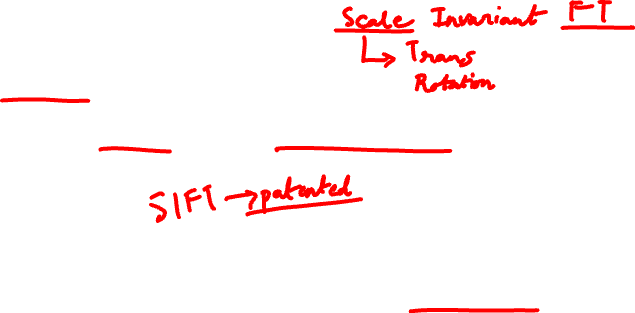 Scale Invariant FT
Trans
Rotation
SIFT → patented